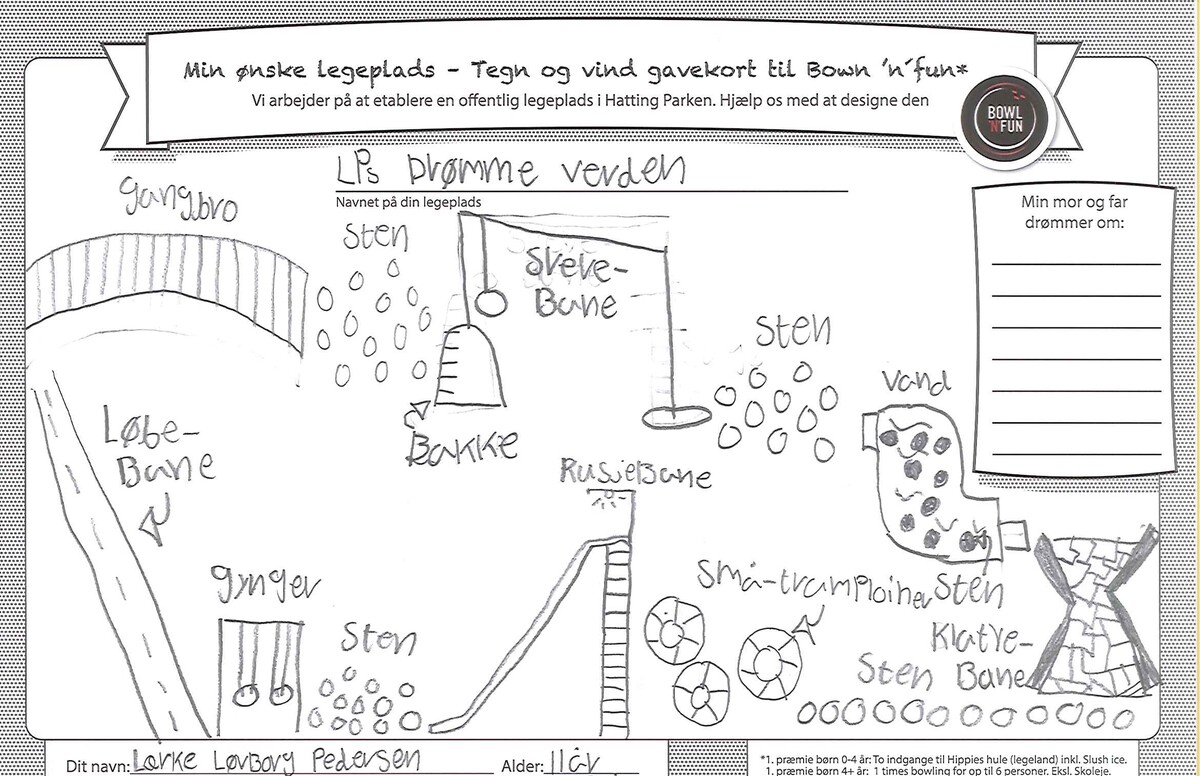 Min ønske legeplads - Tegn og vind gavekort til Bown 'n'fun*
Vi arbejder på at etablere en offentlig legeplads i Hatting Parken. Hjælp os med at designe den
BOWL
'N'FUN
LPs Drømme verden
Navnet på din legeplads
Min mor og far
drømmer om:
Gangbro
Sten
Sveve-
Bane
Sten
Vand
Løbe-
Bane
Bakke
RusjeBane
Gynger
Sten
Små-tramploiner
Sten
Klatre-
Bane
Sten
Dit navn: Lærke Løvborg Pedersen
Alder: 11 år
*1. præmie børn 0-4 år: To indgange til Hippies hule (legeland) inkl. Slush ice.
1. præmie børn 4+ år: 1 times bowling for op til 6 personer. Eksl. Skoleje.